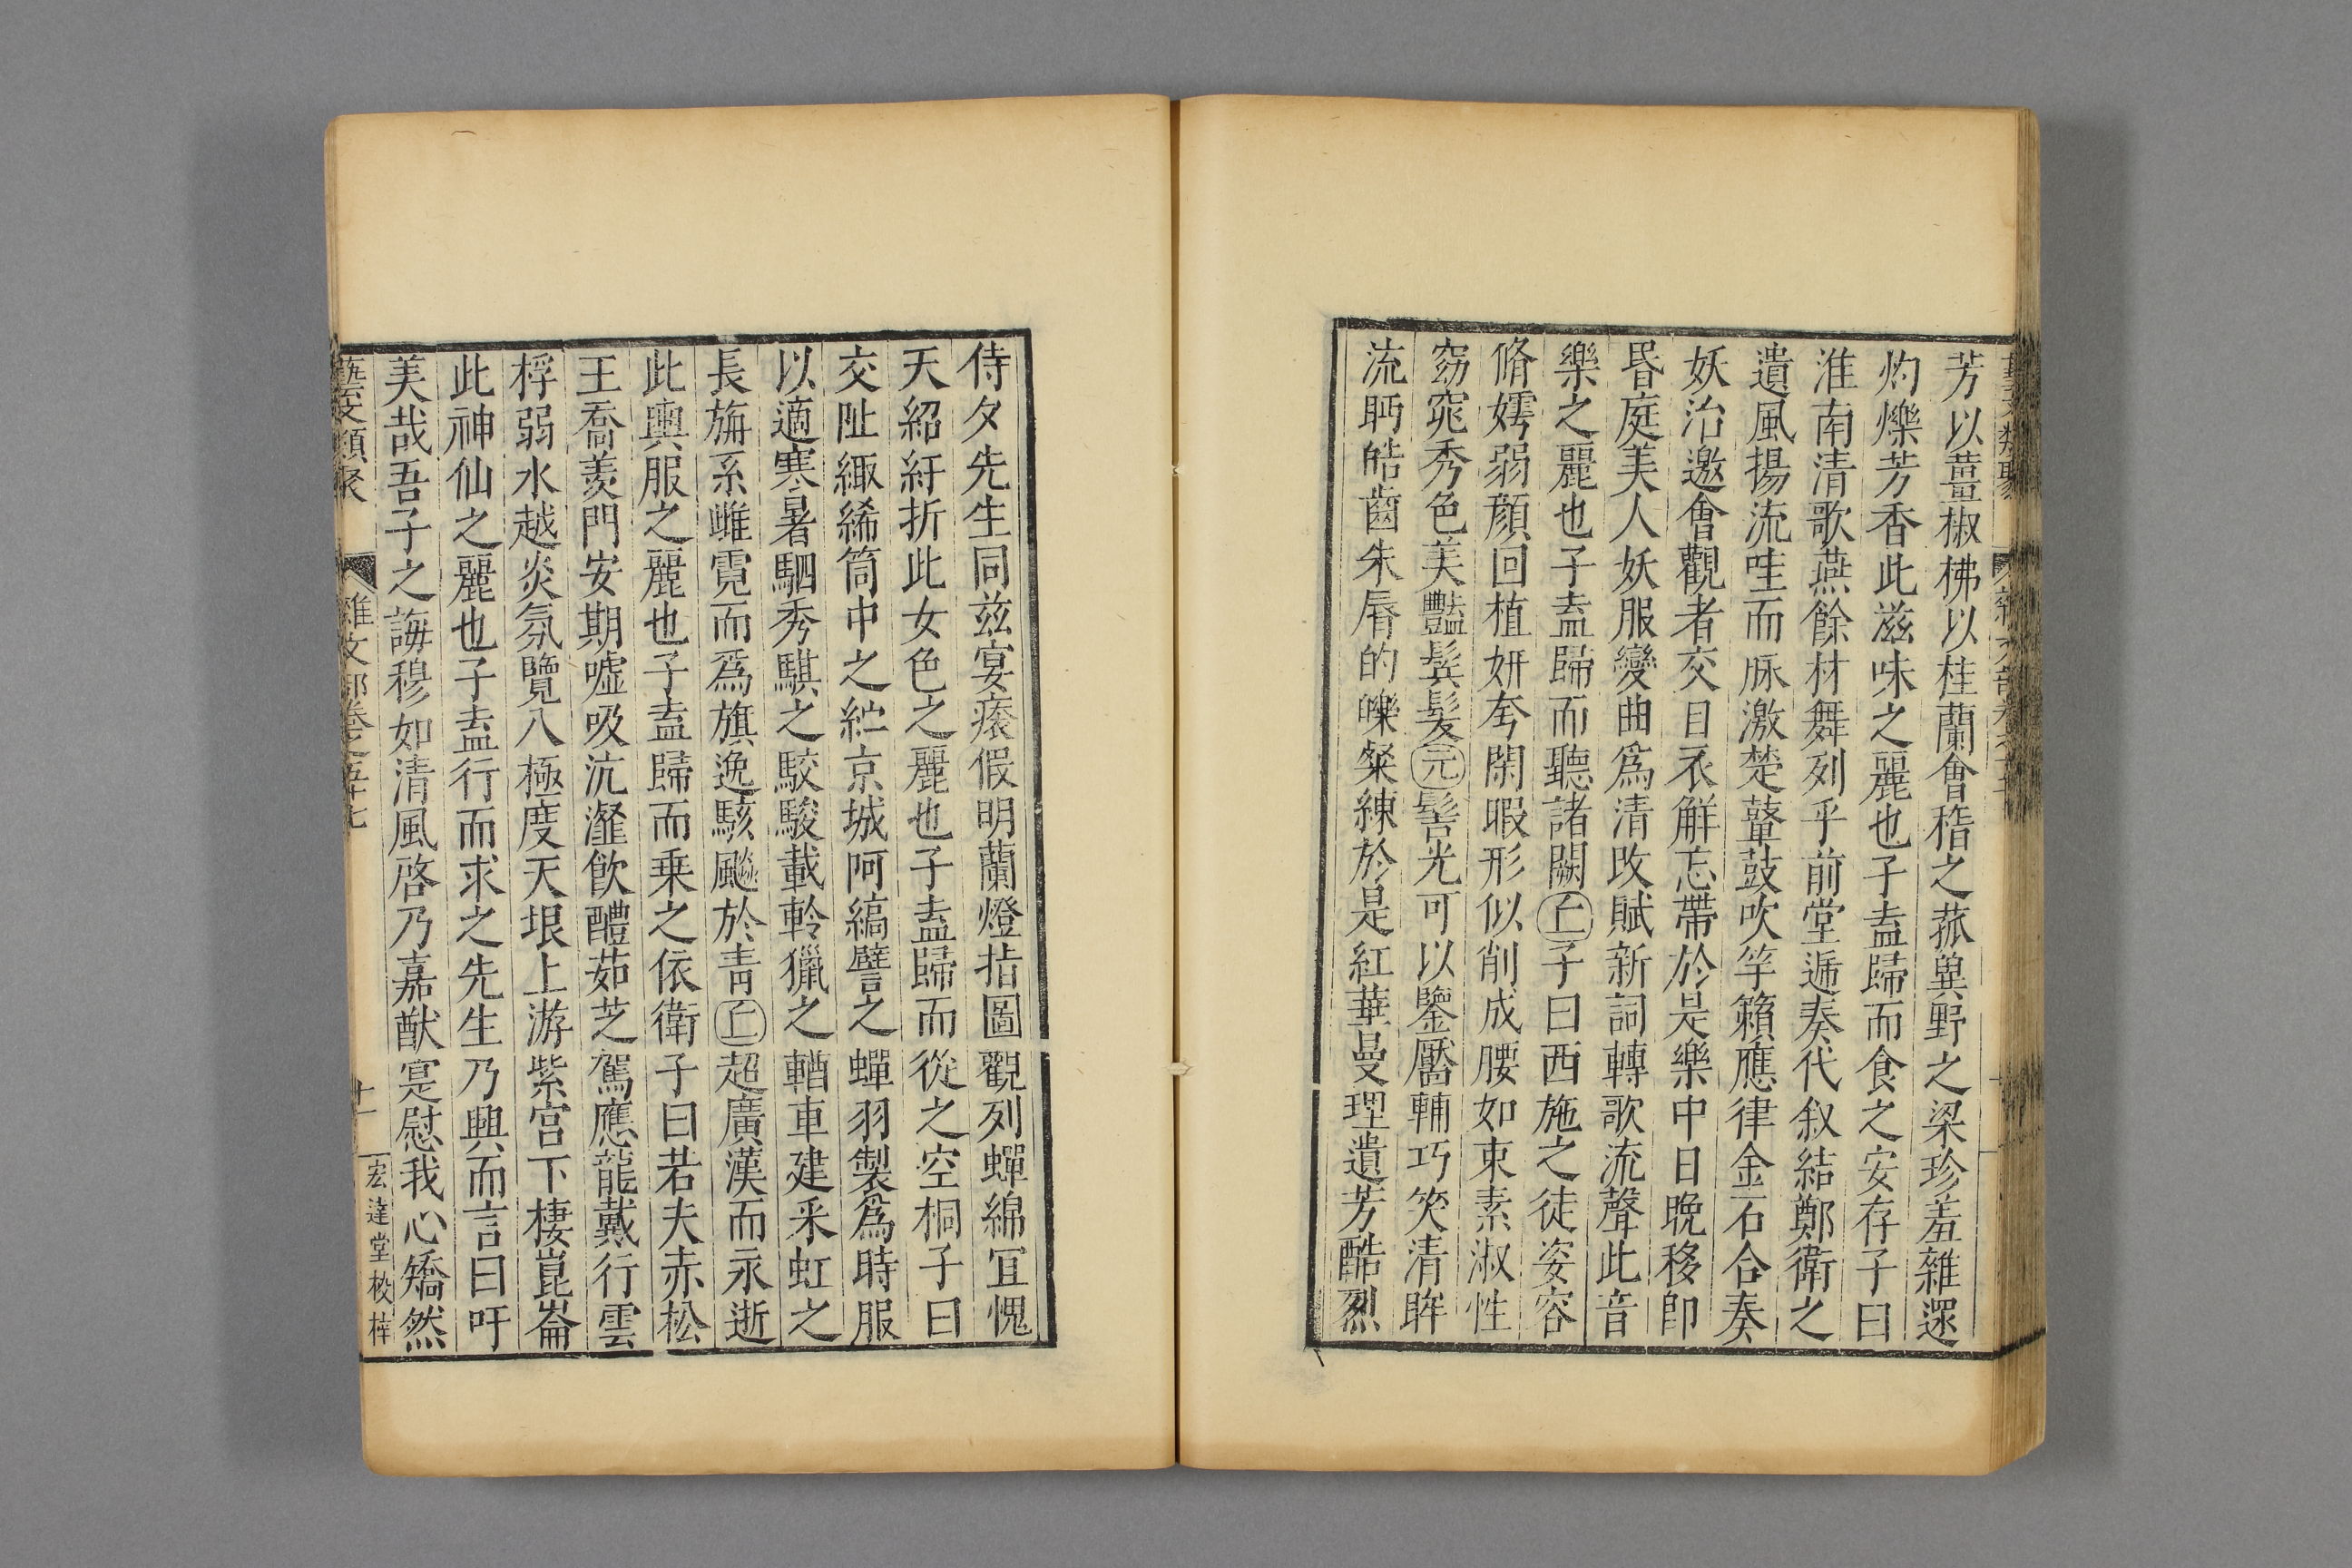 芳以薑椒橃以桂蘭會稽之菰兾野之梁珍羞雜遝
灼爍芳香此滋味之麗也子盍歸而食之安存子曰
淮南清歌燕餘材舞列乎前堂遞奏代叙結鄭衛之
遺風揚流哇而脉激楚鼙鼓吹竽籟應律金石合奏
妖冶邀會觀者交目衣解忘帶於是樂中日晚移卽
昬庭美人妖服變曲爲清改賦新詞轉歌流聲此音
樂之麗也子盍歸而聽諸闕上子曰西施之徒姿容
脩嫮弱顔回植妍夸閑暇形似削成腰如束素淑性
窈窕秀色美豔鬒髪元髻光可以鑒靨輔巧笑清眸
流眄皓齒朱脣的皪粲練於是紅華曼理遺芳酷烈
侍夕先生同兹宴瘞假明蘭燈指圖觀列蟬綿冝愧
天紹紆折此女色之麗也子盍歸而從之空桐子曰
交阯緅絺筒中之紵京城阿縞譬之蟬羽製爲時服
以適寒暑駟秀騏之駮駿載軨獵之輶車建釆虹之
長旃系雌霓而爲旗逸駭飈於青上超廣漢而永逝
此輿服之麗也子盍歸而乗之依衛子曰若夫赤松
王喬羨門安期嘘吸沆瀣飲醴茹芝駕應龍戴行雲
桴弱水越炎氛覽八極度天垠上游紫宫下棲崑崙
此神仙之麗也子盍行而求之先生乃興而言曰吁
美哉吾子之誨穆如清風啓乃嘉猷寔慰我心矯然
藝文類聚 雜文部卷之五十七 十一 宏達堂校梓